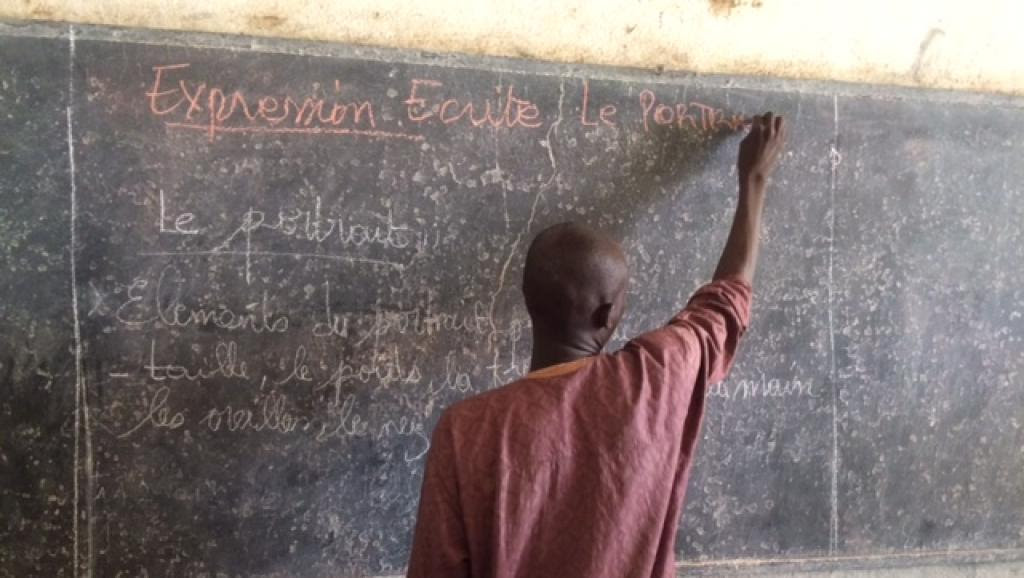 Expression Ecrite Le PORTRA
Le portrait
x Elements du portrait p
- taille, le poids, la main
les oreilles, le